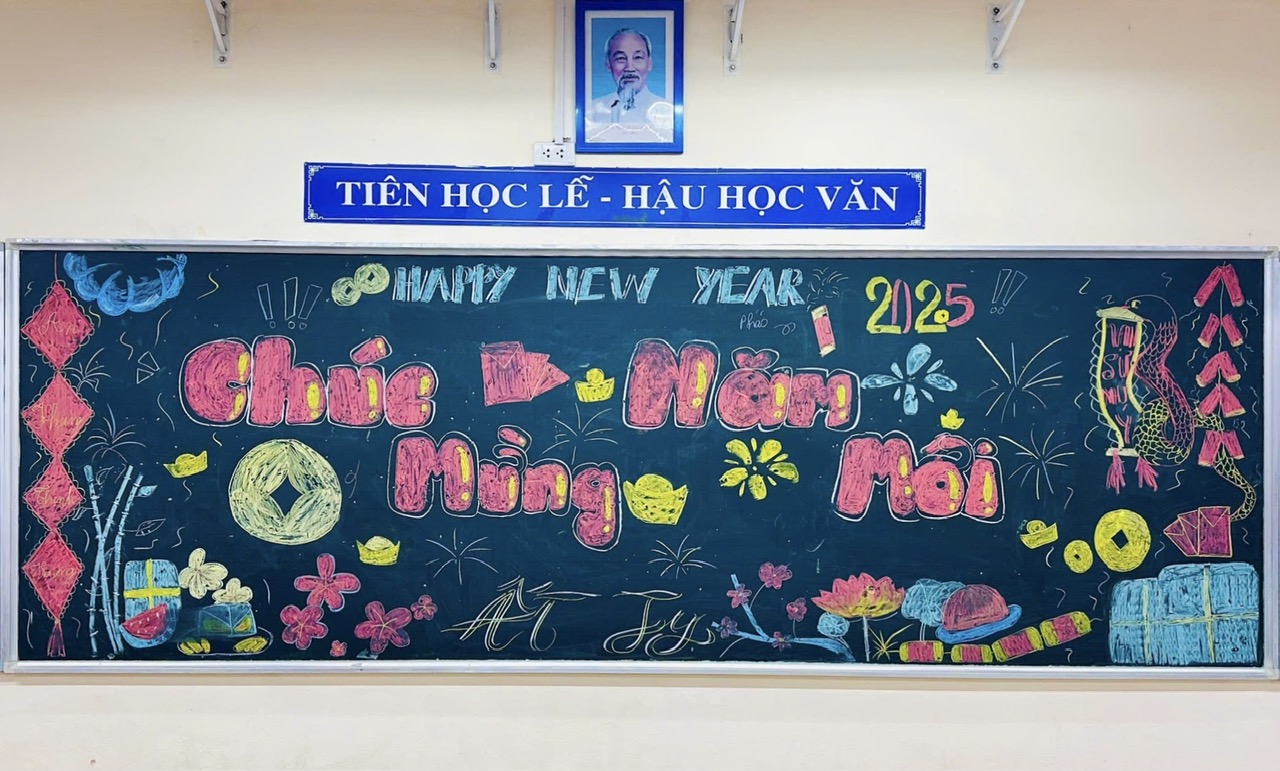 TIÊN HỌC LỄ - HẬU HỌC VĂN
HAPPY NEW YEAR 2025
pháo
Chúc
Mừng
Năm
Mới
An
Khang
Thịnh
Vượng
ẤT TỴ